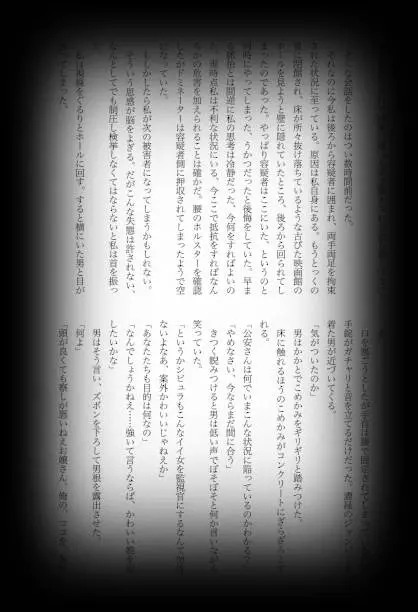 な会話をしたのはつい数時間前だった。
それなのに今私は後ろから容疑者に囲まれ、両手両足を拘束
され状況に至っている。原因は私自身にある。もうとっくの
閉館され、床が所々抜け落ちているような古びた映画館の
ホールを見ようと壁に隠れていたところ、後ろから回られてし
まったのであった。やっぱり容疑者はここにいた、というのと
同時にやってしまった、うかつだったと後悔をしていた。早ま
とは間逆に私の思考は冷静だった、今何をすればよいの
現時点私は不利な状況にいる、今ここで抵抗をすればなん
かの危害を加えられることは確かだ。腰のホルスターを確認
したがドミネーターは容疑者側に押収されてしまったようで空
になっていた。
しかしたら私が次の被害者になってしまうかもしれない。
そういう思惑が脳をよぎる。だがこんな失態は許されない、
なんとしてでも制圧し検挙しなくてはならないと私は首を振っ
私は視線をぐるりとホールに回す。すると横にいた男と目が
てしまった。
手錠がガチャリと音を立てるだけだった。
着た男が近づいてくる。
「気がついたのか」
男はかかとでこめかみをギリギリと踏みつけた。
床に触れるほうのこめかみがコンクリートに
れる。
「公安さんは何でいまこんな状況に陥っているのかわかる
「やめなさい、今ならまだ間に合う」
きつく睨みつけると男は低い声でぼそぼそと何か言いながら
笑っていた。
「というかシビュラもこんなイイ女を監視官にするなんて
ないよなあ、案外かわいいじゃねえか」
「あなたたちも目的は何なの」
「なんでしょうかねえ……強いて言うならば、かわいい娘を
したいかな」
男はそう言い、ズボンを下ろして男根を露出させた。
「何よ」
「頭が良くても察しが悪いねえお嬢さん、俺の、ココを、